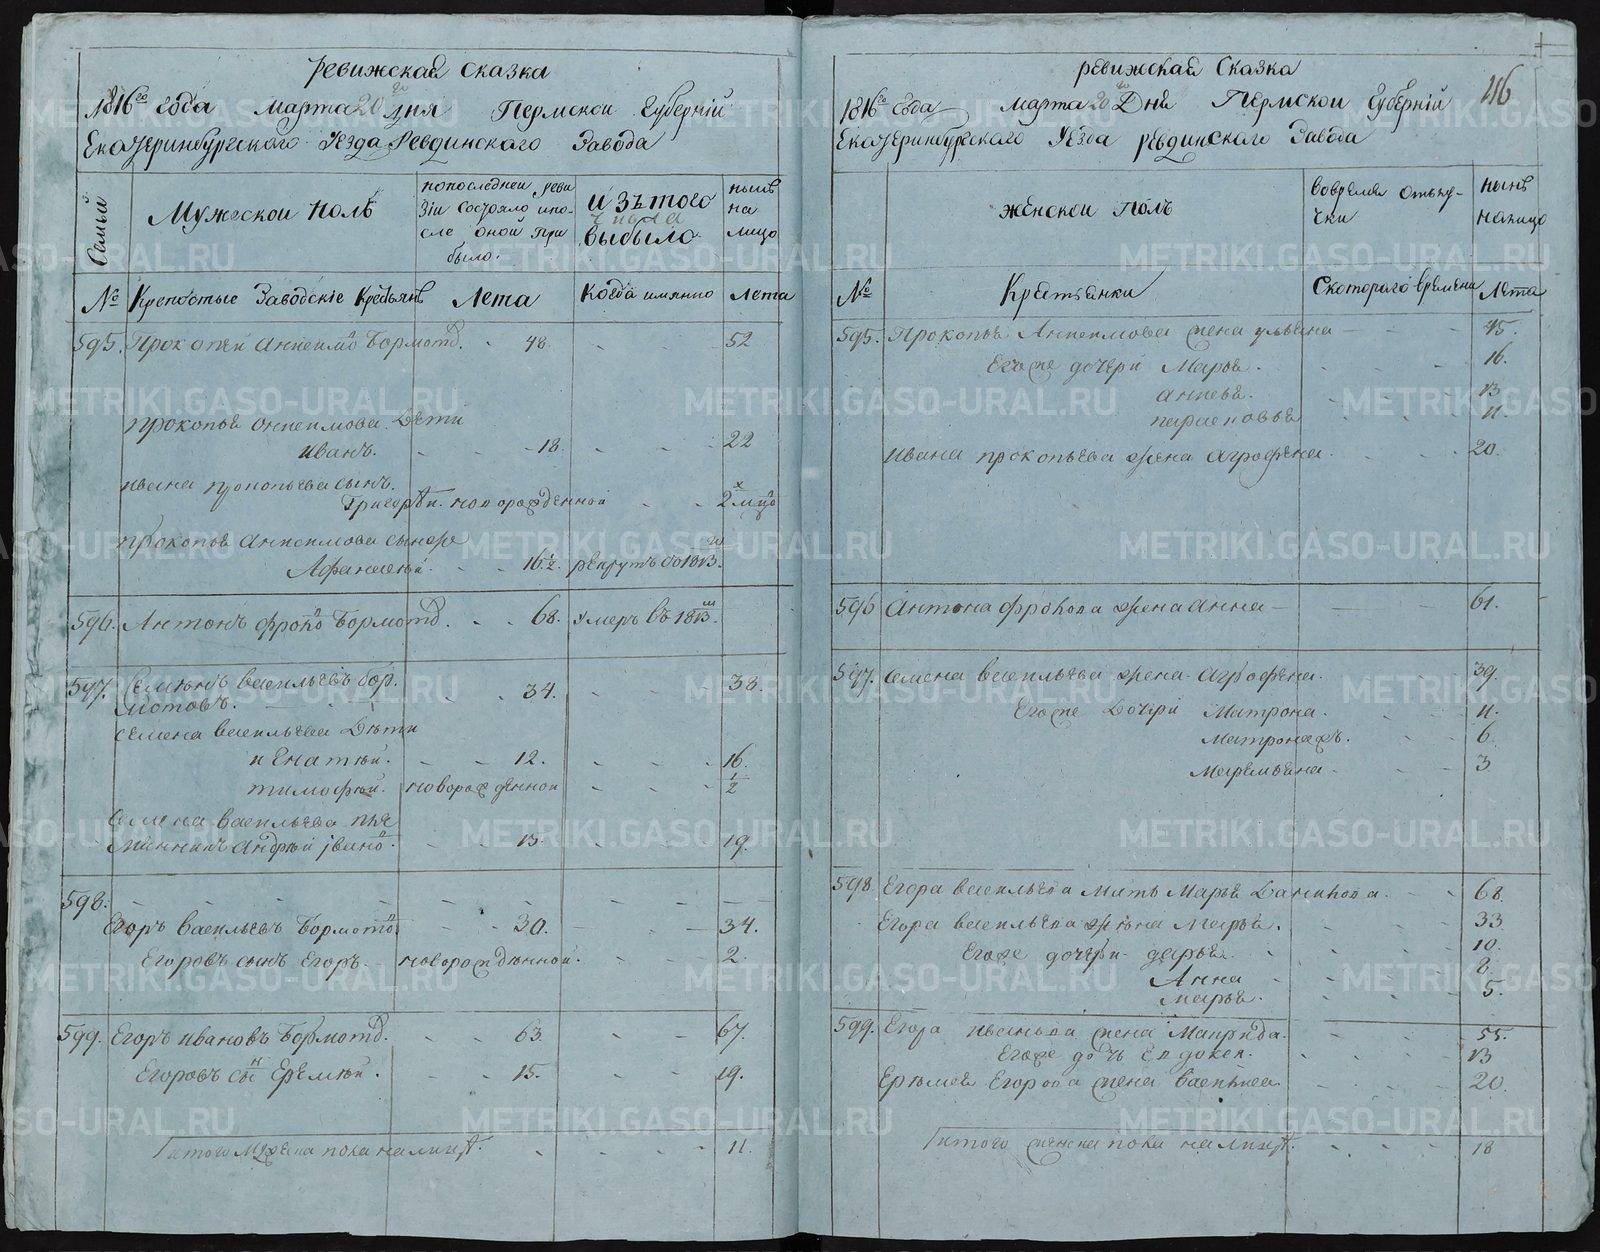 Ревижская Сказка
1816го года Марта 20го дня Пермской Губернїи
Екатеринбургского Уѣзда Ревдинского Завода
Семьи
Мужеской полъ
попоследней реви
зїи состояло ипо
сле оной при
было.
Изъ того
числа
выбыло.
нынѣ
на
лицо
№
Крепостые Заводскіе Крестьянѣ
Лета
Когда имянно
Лета
595. Прокопей Анисимо Бормотов. - 48. - 52
Прокопья Онисимова Дети
Иванъ. - - 18. - - 22
Ивана Прокопьева сынъ.
Григорей. новорожденной - - 2 мцо
Прокопья Анисимова сынже
Афанасей. - - 16½. рекрутъ во 1813го.
596. Антонъ Фроло Бормотов. - - 68. Умеръ въ 1813м.
597. Семионъ Васильевъ Бор.
мотовъ. - - 34. - - 38.
Семена Васильева Дѣти
Игнатий. - - 12. - - 16.
Тимофѣй. новорожденной - - ½
Семена Васильева пле
мянникъ Андрѣй Ивано. - 15. - - 19.
598. - - - - - - -
Егоръ Васильевъ Бормото - - 30. - - 34.
Егоровъ сынъ Егоръ. - новорожденной. - - 2.
599. Егоръ Ивановъ Бормотов. - - 63. - - 67.
Егоровъ сынъ Еремѣй. - - 15. - - 19.
Итого мужеска пола налицо. - - - 11.
46
Ревижская Сказка
1816го года Марта 20го Дня Пермской Губернїи
Екатеринбургского Уѣзда Ревдинского Завода
Женской Полъ
вовремян отлу-
чки
нынѣ
налицо
№
Крестьянки
Скоторого Времени
Лета
595. Прокопья Анисимова жена Ульяна - - 45.
Егоже дочери Марья. - - 16.
Анисья. - - 13
Парасковья - - 11.
Ивана Прокопьева жена Аграфена. - - 20.
596 Антона Фролова жена Анна - - 61.
597. Семена Васильева жена Аграфена. - - 39.
Егоже Дочери Матрона. - - 11.
Матронажъ. - - 6.
Маремьяна. - - 3
598. Егора Васильева Мать Марья Данилова. - - 68.
Егора Васильева жена Марья. - - 33
Егоже дочери Дарья. - - 10.
Анна - - 8
Марья. - - 5.
599. Егора Иванова жена Манрида. - - 55.
Егоже дочь Евдокея. - - 13
Еремея Егорова жена Василиса. - - 20.
Итого женска пола налицо. - - - 18
METRIKI.GASO-URAL.RU